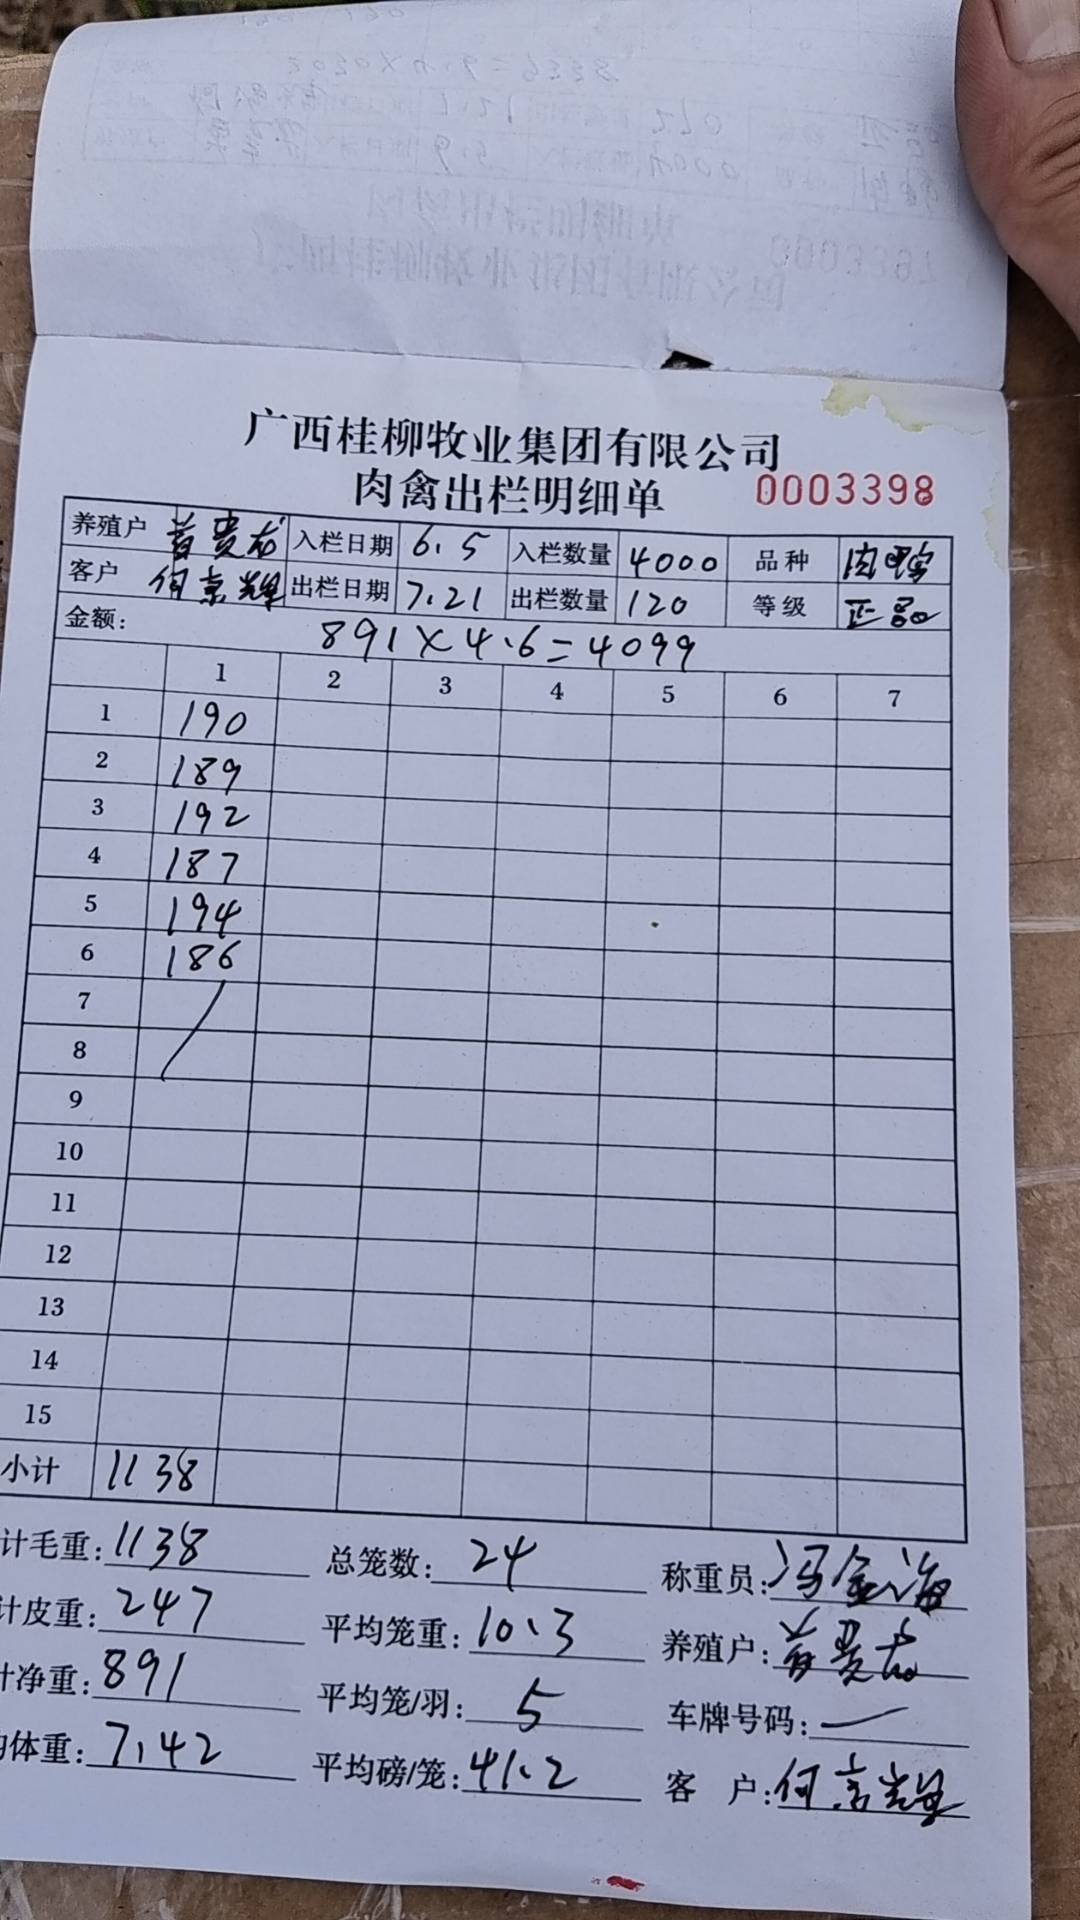 广西桂柳牧业集团有限公司
肉禽出栏明细单 0003398
养殖户 入栏日期 6.5 入栏数量 4000 品种 肉鸭
客户 出栏日期 7.21 出栏数量 120 等级 正品
金额: 891×4.6=4099
1 2 3 4 5 6 7
1 190
2 189
3 192
4 187
5 194
6 186
7
8
9
10
11
12
13
14
15
小计 1138
计毛重: 1138 总笼数: 24 称重员: 冯金海
计皮重: 247 平均笼重: 10.3 养殖户:
计净重: 891 平均笼/羽: 5 车牌号码: —
体重: 7.42 平均磅/笼: 41.2 客 户: